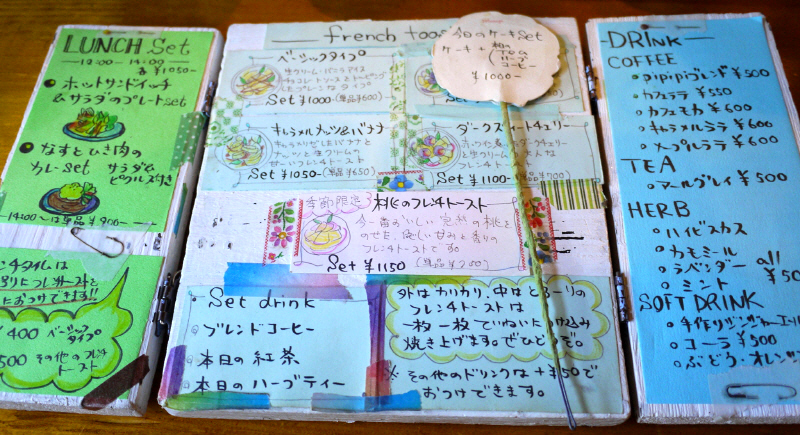 LUNCH Set
12:00 - 14:00
各¥1050-
• ホットサンドイッチ
&サラダのプレートset
• なすとひき肉の
カレーset サラダ&
ピクルス付き
14:00〜は単品¥900-
ンチタイムは
おつけできます!!
¥400 ベーシックタイプ
500 その他のフレンチトースト
french toast
ベーシックタイプ
生クリーム・バニラアイス
チョコレートソースをトッピング
したプレンなタイプ
Set ¥1000-(単品¥600)
キャラメルナッツ&バナナ
ナッツと生クリームの
Set ¥1050-(単品¥650)
ダークスィートチェリー
と生クリームの大人な
フレンチトースト
Set ¥1100-
今日のケーキset
ケーキ+
ハーブ
コーヒー
¥1000-
季節限定
桃のフレンチトースト
今一番おいしい完熟の桃を
のせた、優しい甘みと香りの
フレンチトーストです。
Set ¥1150 (単品¥700)
Set drink
• ブレンドコーヒー
• 本日の紅茶
• 本日のハーブティー
外はカリカリ、中はとろーりの
フレンチトーストは
一枚一枚ていねいにつけ込み
焼き上げます。ぜひどうぞ。
※その他のドリンクは+¥50で
おつけできます。
DRINK
COFFEE
• pipipiブレンド ¥500
• カフェラテ ¥550
• カフェモカ ¥600
• キャラメルラテ ¥600
• メープルラテ ¥600
TEA
• アールグレイ ¥500
HERB
• ハイビスカス
• カモミール
• ラベンダー all
• ミント ¥50
SOFT DRINK
• 手作りジンジャーエール
• コーラ ¥500
• ぶどう・オレンジ